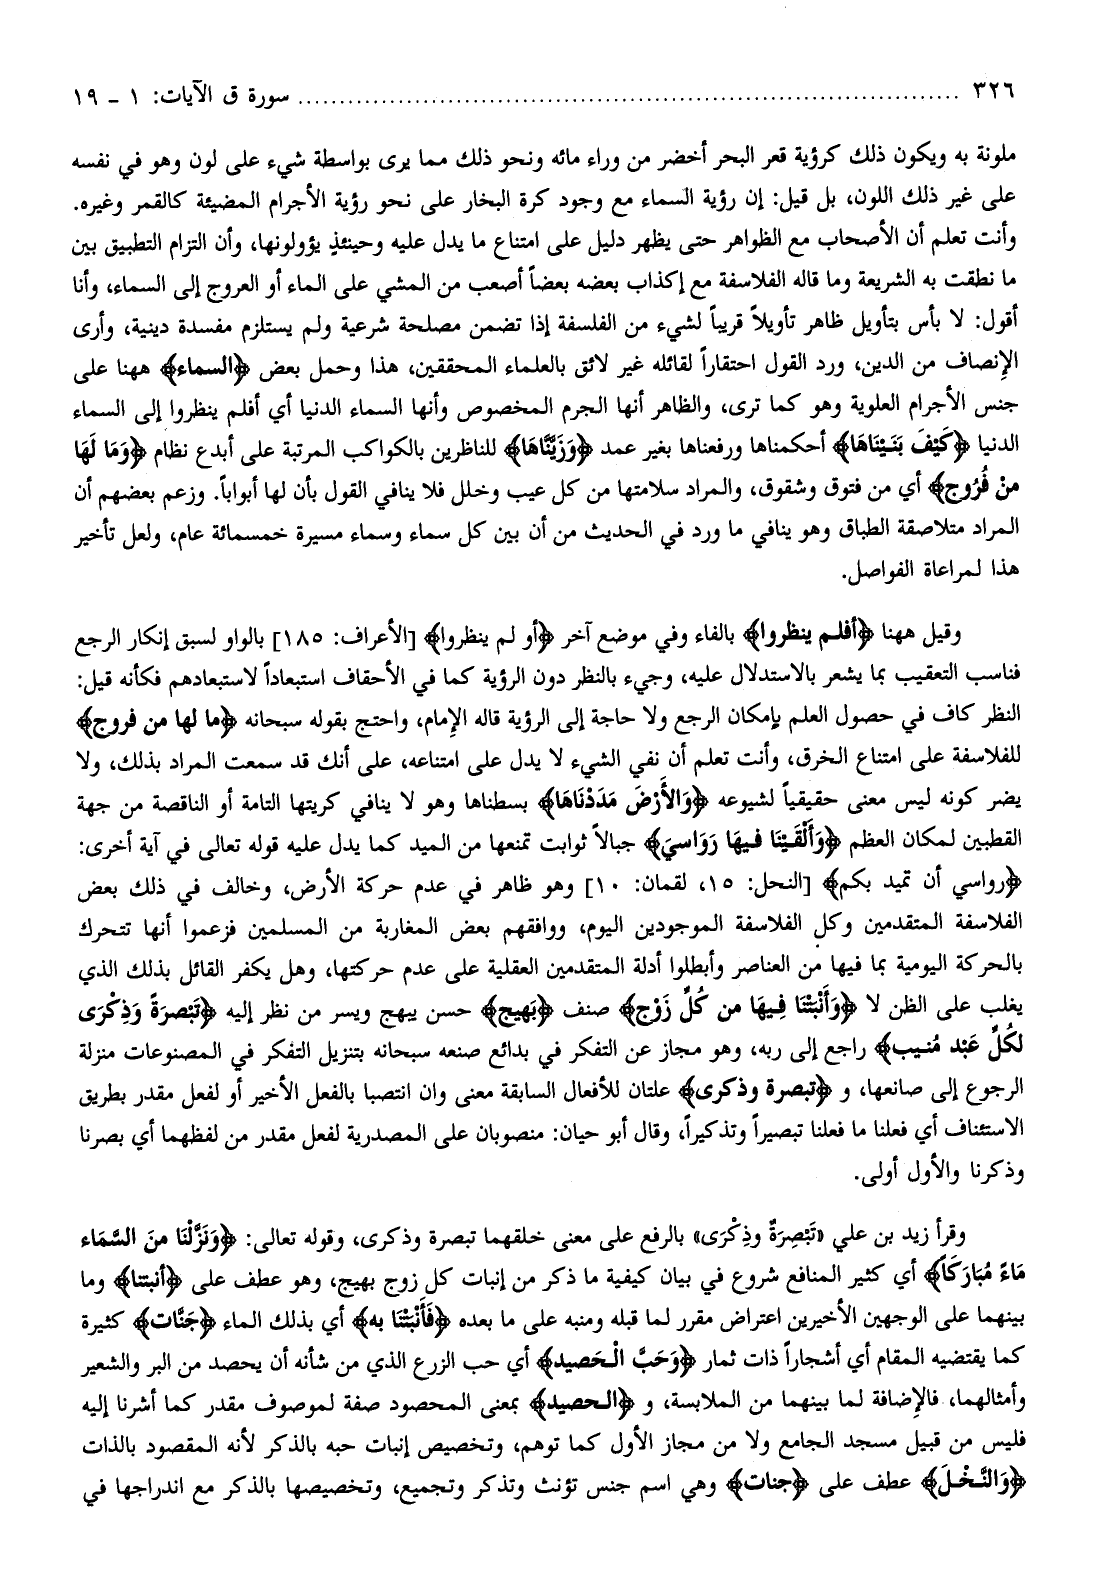 ٣٢٦ ........................................ سورة ق الآيات: ١ - ١٩
ملونة به ويكون ذلك كرؤية قعر البحر أخضر من وراء مائه ونحو ذلك مما يرى بواسطة شيء على لون وهو في نفسه
على غير ذلك اللون، بل قيل: إن رؤية السماء مع وجود كرة البخار على نحو رؤية الأجرام المضيئة كالقمر وغيره.
وأنت تعلم أن الأصحاب مع الظواهر حتى يظهر دليل على امتناع ما يدل عليه وحينئذٍ يؤولونها، وأن التزام التطبيق بين
ما نطقت به الشريعة وما قاله الفلاسفة مع إكذاب بعضه بعضاً أصعب من المشي على الماء أو العروج إلى السماء، وأنا
أقول: لا بأس بتأويل ظاهر تأويلاً قريباً لشيء من الفلسفة إذا تضمن مصلحة شرعية ولم يستلزم مفسدة دينية، وأرى
الإنصاف من الدين، ورد القول احتقاراً لقائله غير لائق بالعلماء المحققين، هذا وحمل بعض ﴿السماء﴾ ههنا على
جنس الأجرام العلوية وهو كما ترى، والظاهر أنها الجرم المخصوص وأنها السماء الدنيا أي أفلم ينظروا إلى السماء
الدنيا ﴿كَيْفَ بَنَيْنَاهَا﴾ أحكمناها ورفعناها بغير عمد ﴿وَزَيَّنَّاهَا﴾ للناظرين بالكواكب المرتبة على أبدع نظام ﴿وَمَا لَهَا
مِنْ فُرُوجٍ﴾ أي من فتوق وشقوق، والمراد سلامتها من كل عيب وخلل فلا ينافي القول بأن لها أبواباً. وزعم بعضهم أن
المراد متلاصقة الطباق وهو ينافي ما ورد في الحديث من أن بين كل سماء وسماء مسيرة خمسمائة عام، ولعل تأخير
هذا لمراعاة الفواصل.
وقيل ههنا ﴿أفلم ينظروا﴾ بالفاء وفي موضع آخر ﴿أو لم ينظروا﴾ [الأعراف: ١٨٥] بالواو لسبق إنكار الرجع
فناسب التعقيب بما يشعر بالاستدلال عليه، وجيء بالنظر دون الرؤية كما في الأحقاف استبعاداً لاستبعادهم فكأنه قيل:
النظر كاف في حصول العلم بإمكان الرجع ولا حاجة إلى الرؤية قاله الإمام، واحتج بقوله سبحانه ﴿ما لها من فروج﴾
للفلاسفة على امتناع الخرق، وأنت تعلم أن نفي الشيء لا يدل على امتناعه، على أنك قد سمعت المراد بذلك، ولا
يضر كونه ليس معنى حقيقياً لشيوعه ﴿وَالأَرْضَ مَدَدْنَاهَا﴾ بسطناها وهو لا ينافي كريتها التامة أو الناقصة من جهة
القطبين لمكان العظم ﴿وَأَلْقَيْنَا فِيهَا رَوَاسِيَ﴾ جبالاً ثوابت تمنعها من الميد كما يدل عليه قوله تعالى في آية أخرى:
﴿رواسي أن تميد بكم﴾ [النحل: ١٥، لقمان: ١٠] وهو ظاهر في عدم حركة الأرض، وخالف في ذلك بعض
الفلاسفة المتقدمين وكل الفلاسفة الموجودين اليوم، ووافقهم بعض المغاربة من المسلمين فزعموا أنها تتحرك
بالحركة اليومية بما فيها من العناصر وأبطلوا أدلة المتقدمين العقلية على عدم حركتها، وهل يكفر القائل بذلك الذي
يغلب على الظن لا ﴿وَأَنْبَتْنَا فِيهَا من كُلِّ زَوْجٍ﴾ صنف ﴿بَهِيجٍ﴾ حسن يبهج ويسر من نظر إليه ﴿تَبْصِرَةً وَذِكْرَى
لكُلِّ عَبْد مُنيب﴾ راجع إلى ربه، وهو مجاز عن التفكر في بدائع صنعه سبحانه بتنزيل التفكر في المصنوعات منزلة
الرجوع إلى صانعها، و ﴿تبصرة وذكرى﴾ علتان للأفعال السابقة معنى وان انتصبا بالفعل الأخير أو لفعل مقدر بطريق
الاستئناف أي فعلنا ما فعلنا تبصيراً وتذكيراً، وقال أبو حيان: منصوبان على المصدرية لفعل مقدر من لفظهما أي بصرنا
وذكرنا والأول أولى.
وقرأ زيد بن علي «تَبْصِرَةٌ وذِكْرَى» بالرفع على معنى خلقهما تبصرة وذكرى، وقوله تعالى: ﴿وَنَزَّلْنَا منَ السَّمَاء
مَاءً مُبَارَكَاً﴾ أي كثير المنافع شروع في بيان كيفية ما ذكر من إنبات كل زوج بهيج، وهو عطف على ﴿أنبتنا﴾ وما
بينهما على الوجهين الأخيرين اعتراض مقرر لما قبله ومنبه على ما بعده ﴿فَأَنْبَتْنَا به﴾ أي بذلك الماء ﴿جَنَّات﴾ كثيرة
كما يقتضيه المقام أي أشجاراً ذات ثمار ﴿وَحَبَّ الْحَصيد﴾ أي حب الزرع الذي من شأنه أن يحصد من البر والشعير
وأمثالهما، فالإضافة لما بينهما من الملابسة، و ﴿الحصيد﴾ بمعنى المحصود صفة لموصوف مقدر كما أشرنا إليه
فليس من قبيل مسجد الجامع ولا من مجاز الأول كما توهم، وتخصيص إنبات حبه بالذكر لأنه المقصود بالذات
﴿وَالنَّخْلَ﴾ عطف على ﴿جنات﴾ وهي اسم جنس تؤنث وتذكر وتجميع، وتخصيصها بالذكر مع اندراجها في